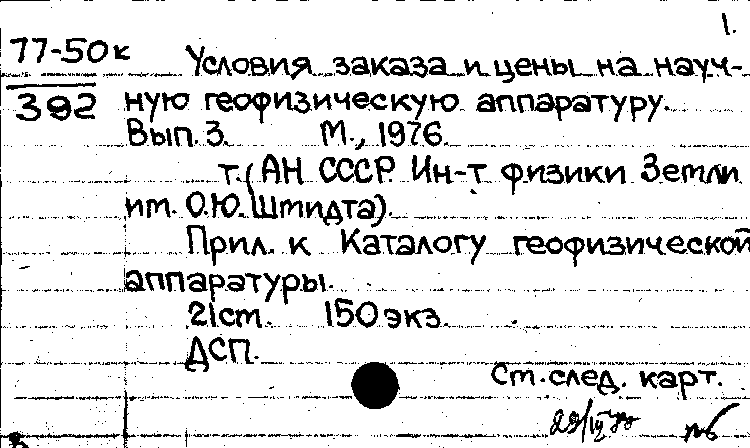 1.
77-50к
392
Условия заказа и цены на науч-
ную геофизическую аппаратуру.
Вып. 3. М., 1976.
т. (АН СССР. Ин-т физики Земли
им. О.Ю. Шмидта).
Прил. к Каталогу геофизической
аппаратуры.
21 ст. 150 экз.
ДСП.
Ст. след. карт.